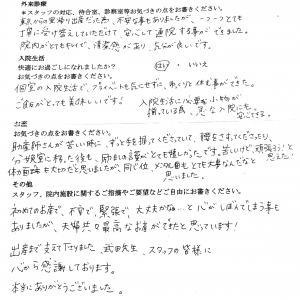 外来診療
*スタッフの対応、待合室、診察室等お気づきの点をお書きください。
東京からの里帰り出産だった為、不安な事もありましたが、一つ一つとても
丁寧に受け答えしていただけて、安心して通院する事ができました。
院内がとてもキレイで、清潔感があり、気分が良いです。
入院生活
快適にお過ごしになれましたか? はい ・ いいえ
お気づきの点をお書きください。
個室の入院生活で、プライベートも気にせずに、ゆっくりと休む事ができました。
ごはんがとても美味しいです! 入院生活に必要な小物が
揃っている為、急な入院にも
安心できる。
お産
お気づきの点をお書きください。
助産師さんが苦しい時に、ずっと手を握ってくださっていて、腰をさすってくださったり、
分娩室に移った後も、励ましの言葉がとても嬉しかったです。苦しいけど、頑張ろう!と
思えた!
体の面も大切だと思いましたが、同じ位、メンタル面もとても大事なんだなと
思いました。
その他
スタッフ、院内施設に関するご指摘やご要望などご自由にお書きください。
初めてのお産で、不安で、緊張で、大丈夫かな…と心がしぼんでしまう事も
ありましたが、夫婦共々最高なお産ができたと思っています!
出産まで支えて下さいました、武田先生、スタッフの皆様に
心から感謝しております。
本当にありがとうございました。